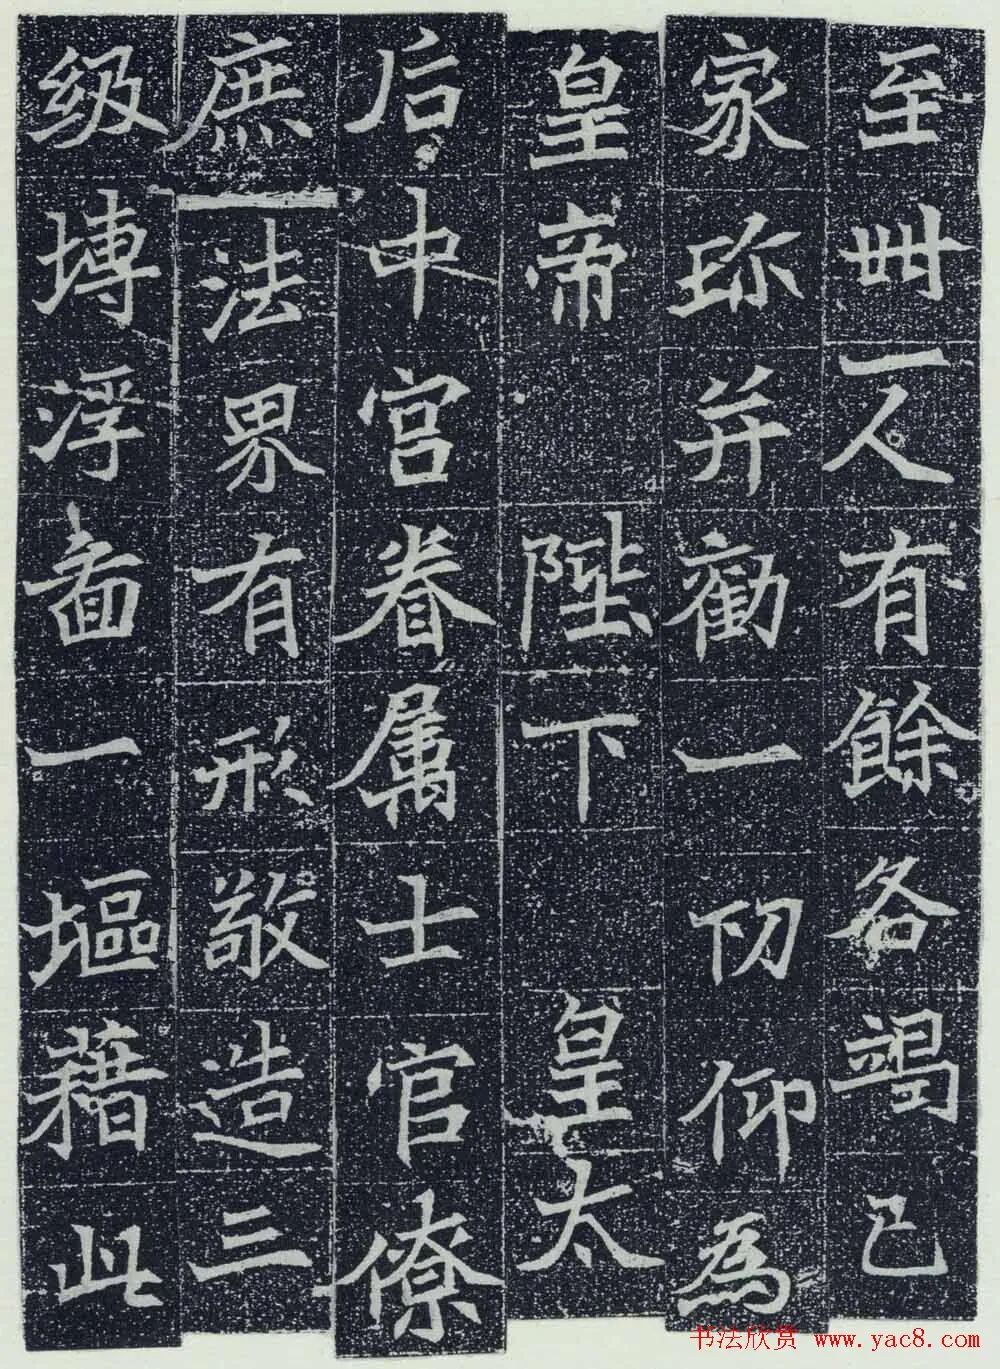 至卌一人有餘各竭己
家珎并勸一仞仰為
皇帝陛下皇太
后中宫眷属士官僚
庶法界有形敬造三
级塼浮啚一塸藉此
书法欣赏 www.yac8.com